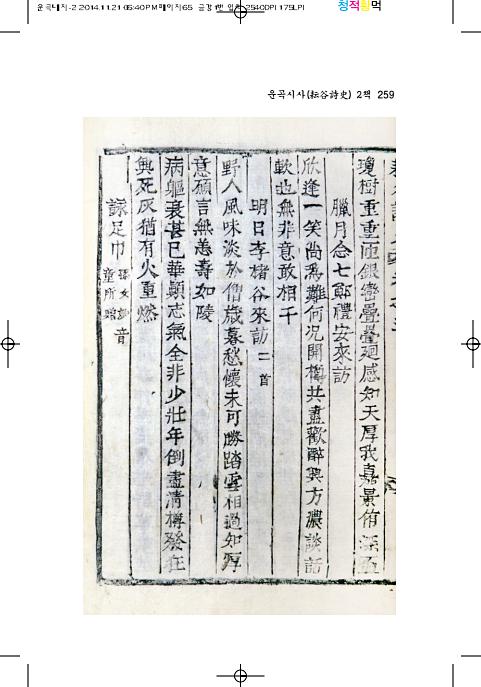 운곡대지-2 2014.11.21 05:40 PM 페이지65
2540DPI 175LPI
청적황먹
운곡시사(耘谷詩史) 2책 259
瓊樹重重匝銀巒疊疊廻感知天厚我嘉景侑深
臘月念七鄭禮安來訪
欣逢一笑尚爲難何況開樽共盡歡醉興方濃談話
軟也無非意敢相干
明日李楮谷來訪二首
野人風味淡於僧歲暮愁懷未可勝踏雪相過知厚
意願言無恙壽如陵
病軀衰甚已華顚志氣全非少壯年倒盡清樽發狂
興死灰猶有火重燃
詠足巾
音